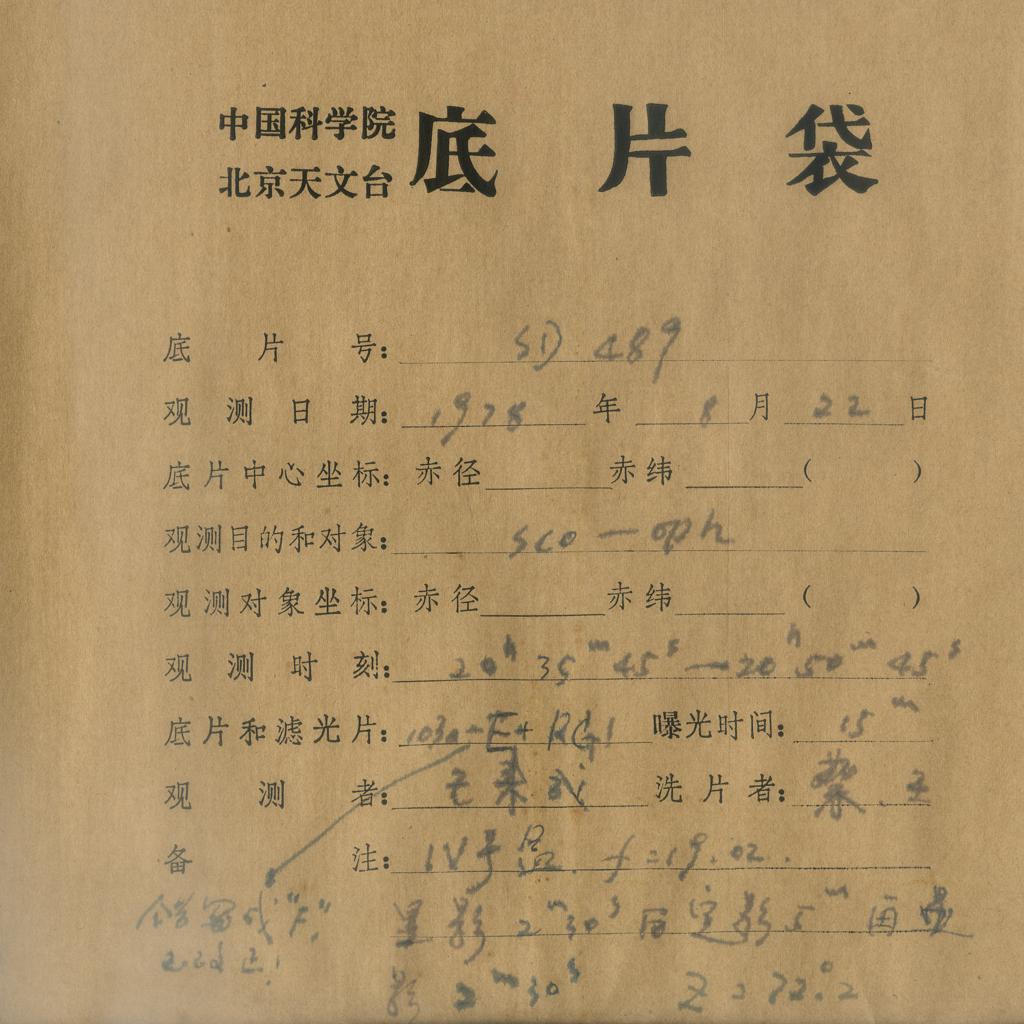 中国科学院
北京天文台 底片袋
底片号: SD 489
观测日期: 1978 年 8 月 22 日
底片中心坐标: 赤径 赤纬 ( )
观测目的和对象: Sco — oph
观测对象坐标: 赤径 赤纬 ( )
观测时刻: 20h 35m 45s — 20h 50m 45s
底片和滤光片: 103a-E+RG1 曝光时间: 15m
观测者: 洗片者: 蔡.王
备注: IV号盒. f=19.02.
错写成"F",
显影 2m30s 后定影 5m 再显
影 2m30s Z=72°.2